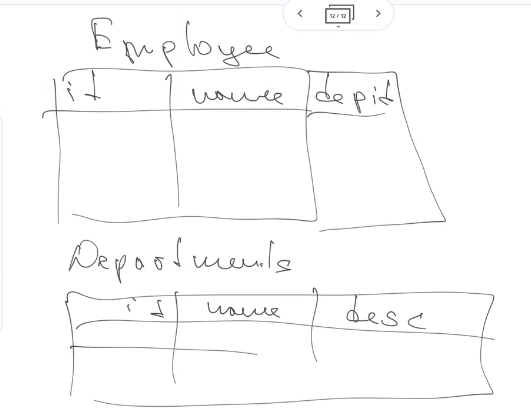 12 / 12
Employee
id name depid
Departments
id name desc